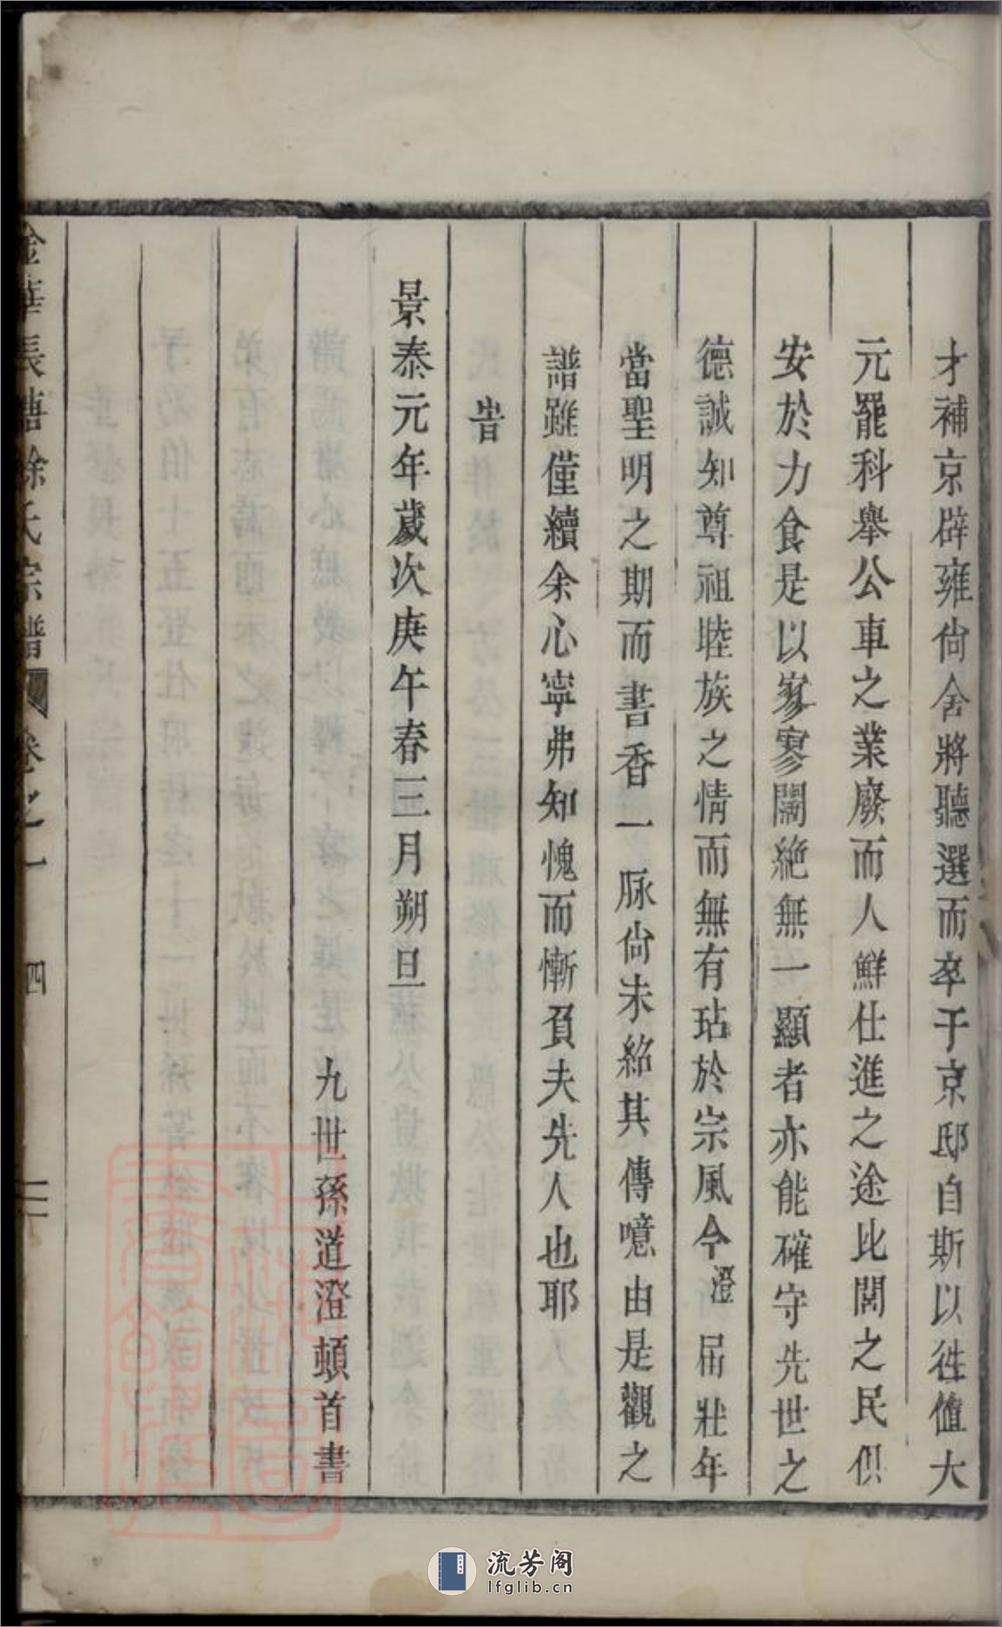 才補京辟雍尙舍將聽選而卒于京邸自斯以徃值大
元罷科舉公車之業廢而人鮮仕進之途比閭之民俱
安於力食是以寥寥闊絶無一顯者亦能確守先世之
德誠知尊祖睦族之情而無有玷於宗風今澄届壯年
當聖明之期而書香一脉尙未紹其傳噫由是觀之
譜雖僅續余心寧弗知愧而慚負夫先人也耶
旹
景泰元年歲次庚午春三月朔旦
九世孫道澄頓首書
金華長塘徐氏宗譜 卷之一 四
流芳阁
lfglib.cn